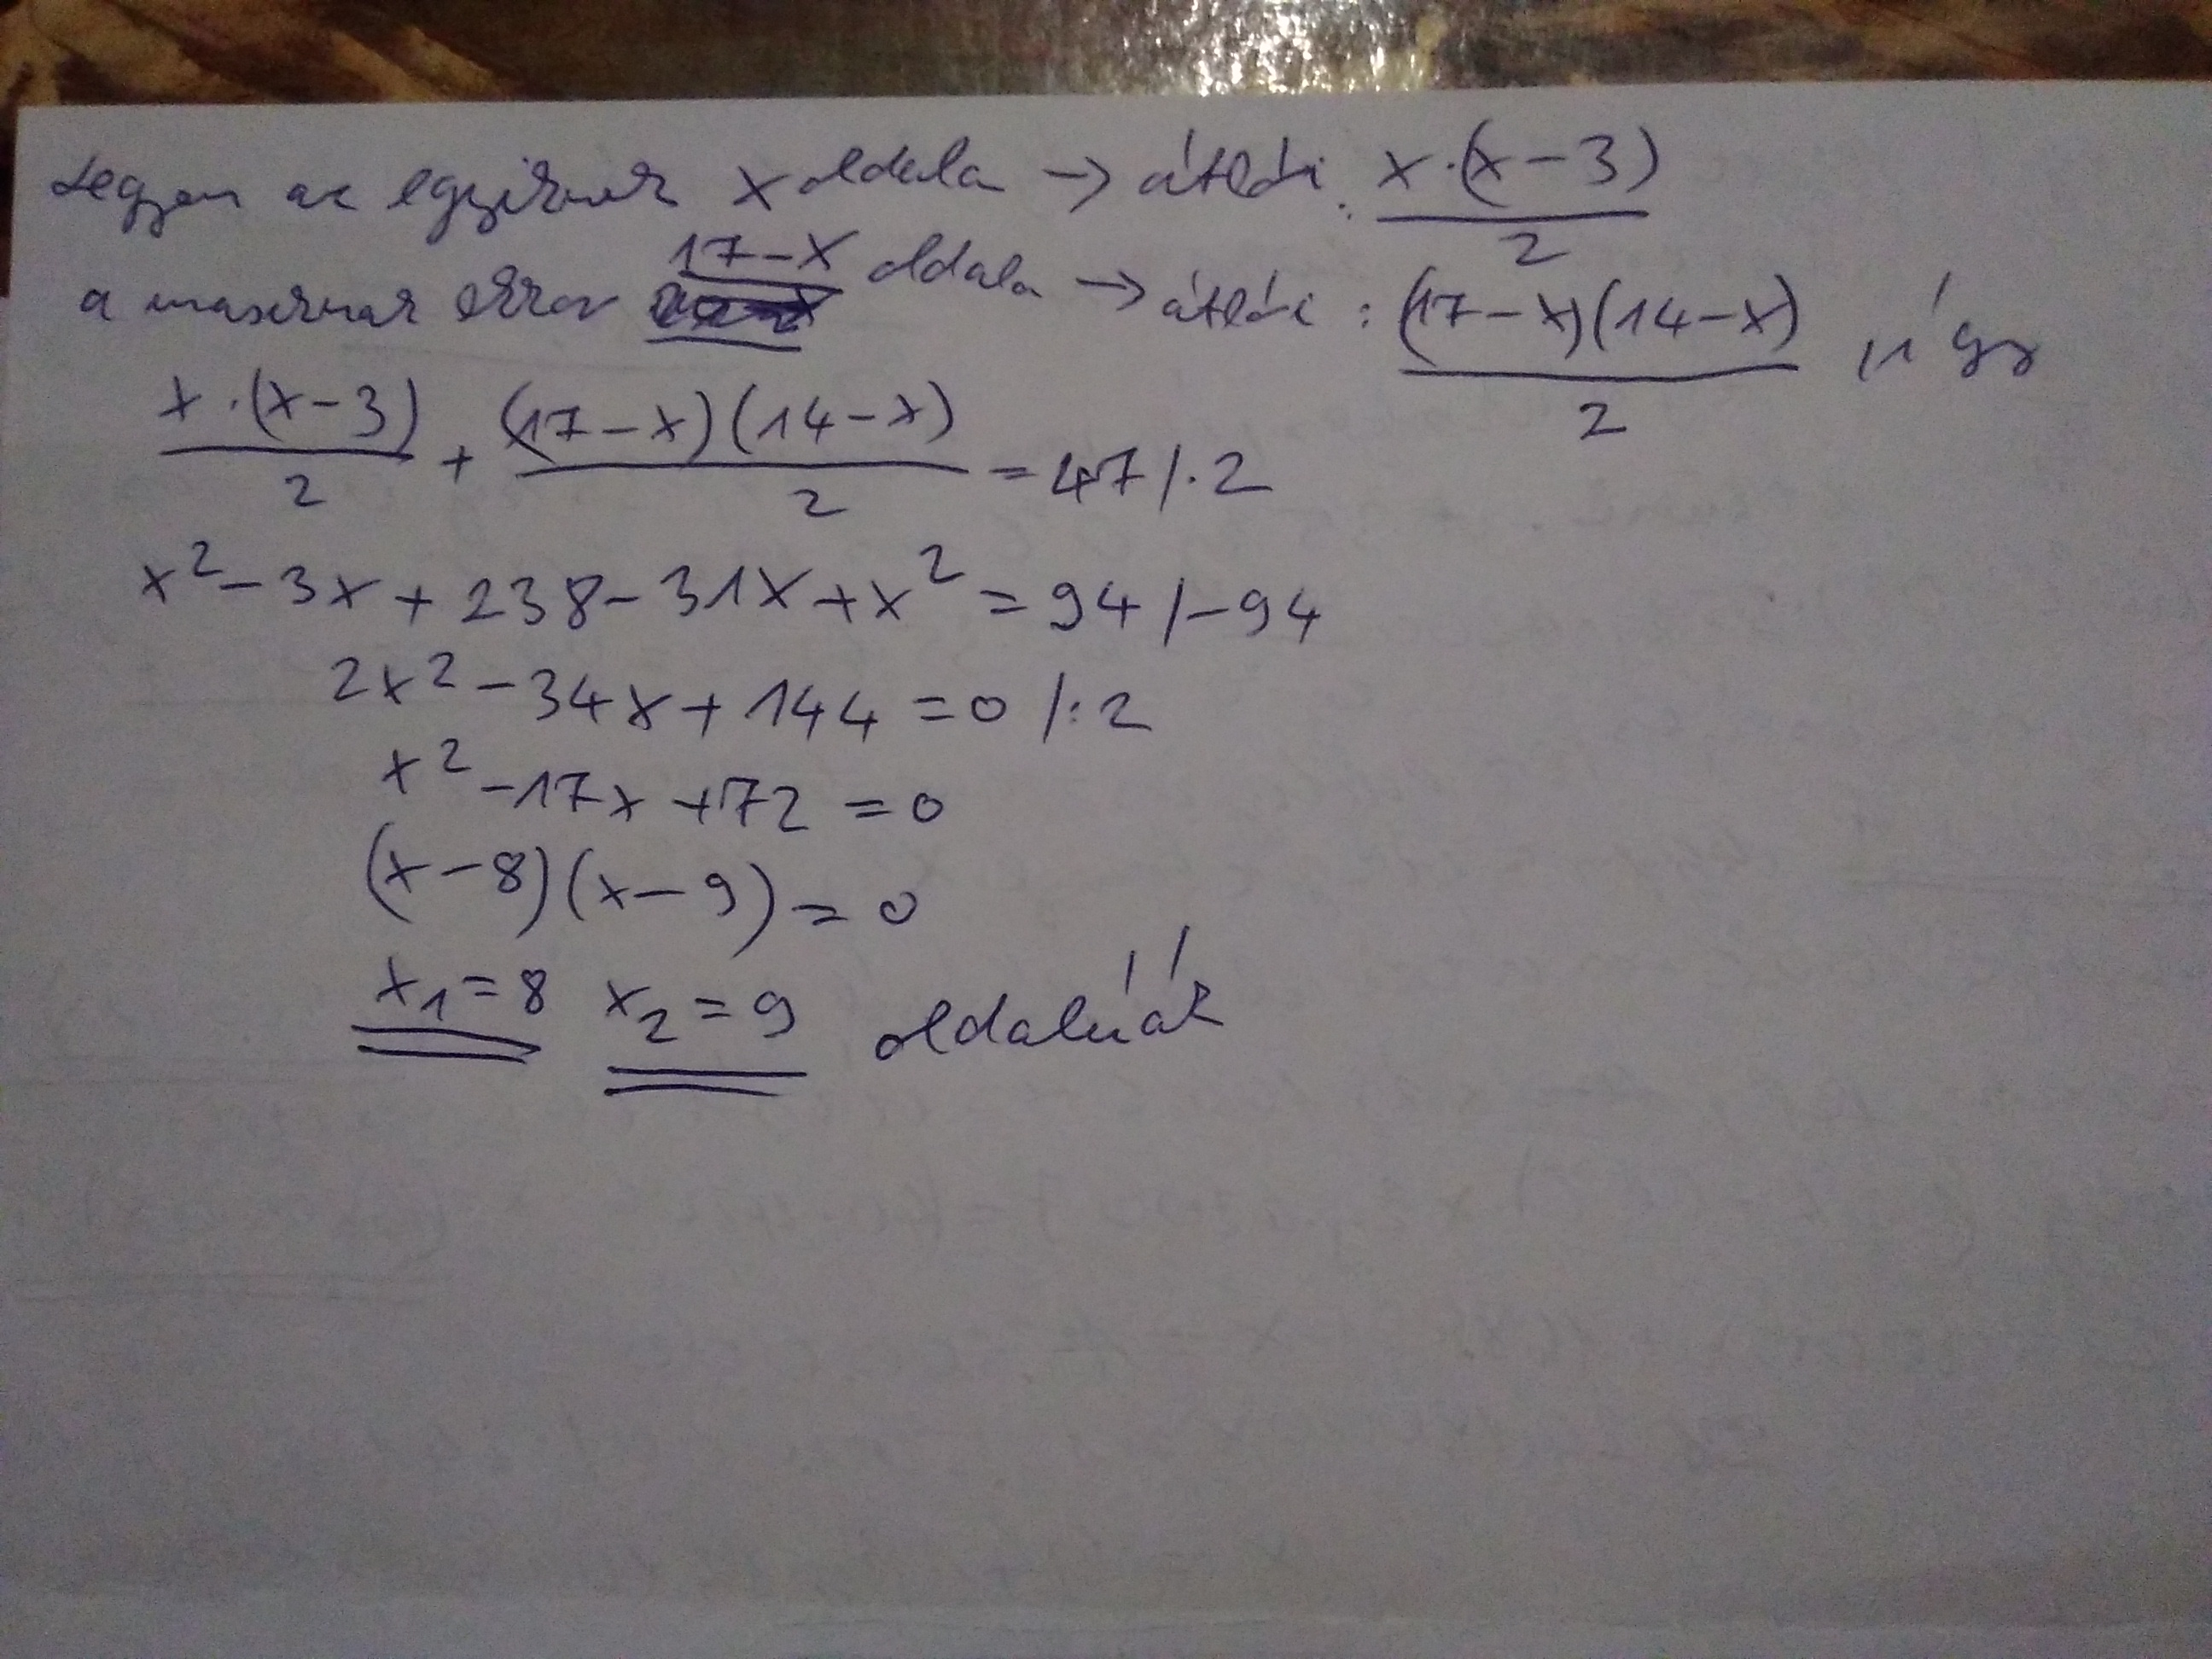 Legyen az egyiknek x oldala → átlói: x·(x-3)/2
a másiknak ekkor 17-x oldala → átlói: (17-x)(14-x)/2, így
x·(x-3)/2 + (17-x)(14-x)/2 = 47 /·2
x²-3x+238-31x+x² = 94 /-94
2x²-34x+144=0 /:2
x²-17x+72=0
(x-8)(x-9)=0
x₁=8 x₂=9 oldalúak